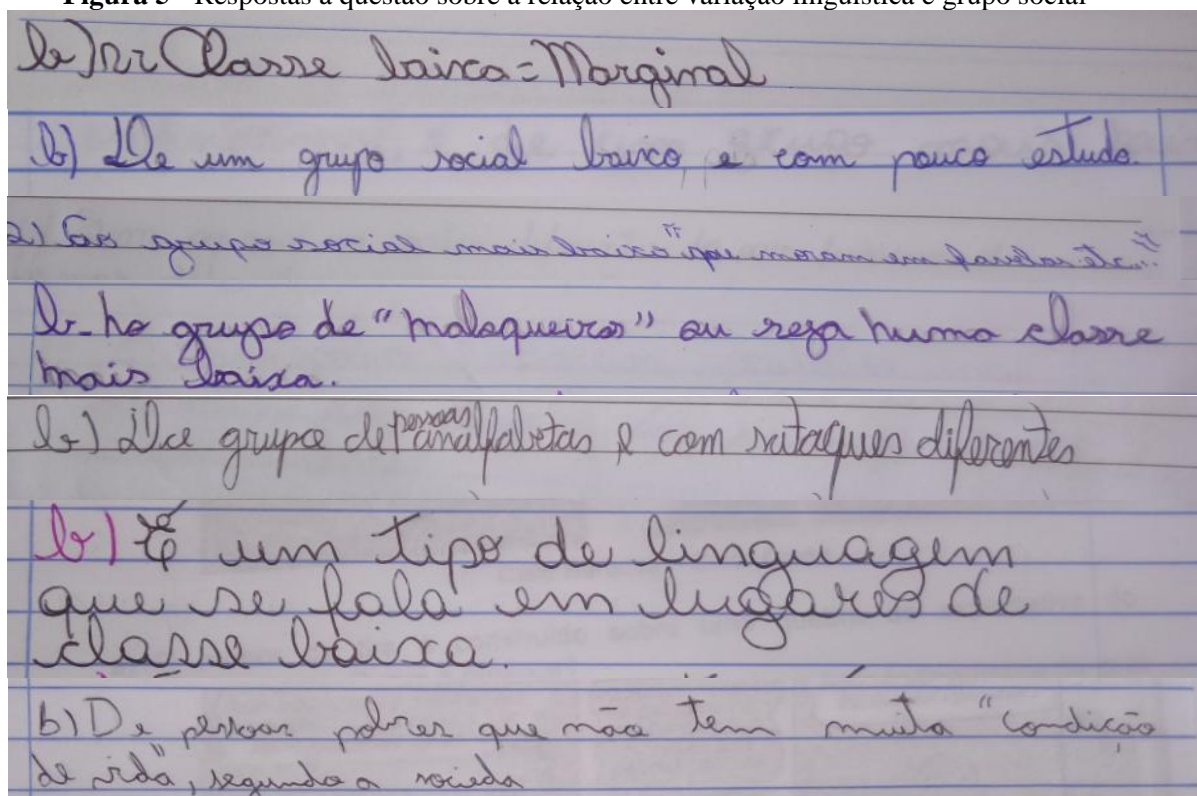 Figura 5 - Respostas à questão sobre a relação entre variação linguística e grupo social
b) Classe baixa = Marginal
b) De um grupo social baixo, e com pouco estudo.
2) grupo social mais baixo "que moram em favelas etc..."
b- no grupo de "maloqueiros" ou seja numa classe
mais baixa.
b) grupo de pessoas analfabetas e com sutaques diferentes
b) É um tipo de linguagem
que se fala em lugares de
classe baixa.
b) De pessoas pobres que não tem muita "condição
de vida", segundo a socieda